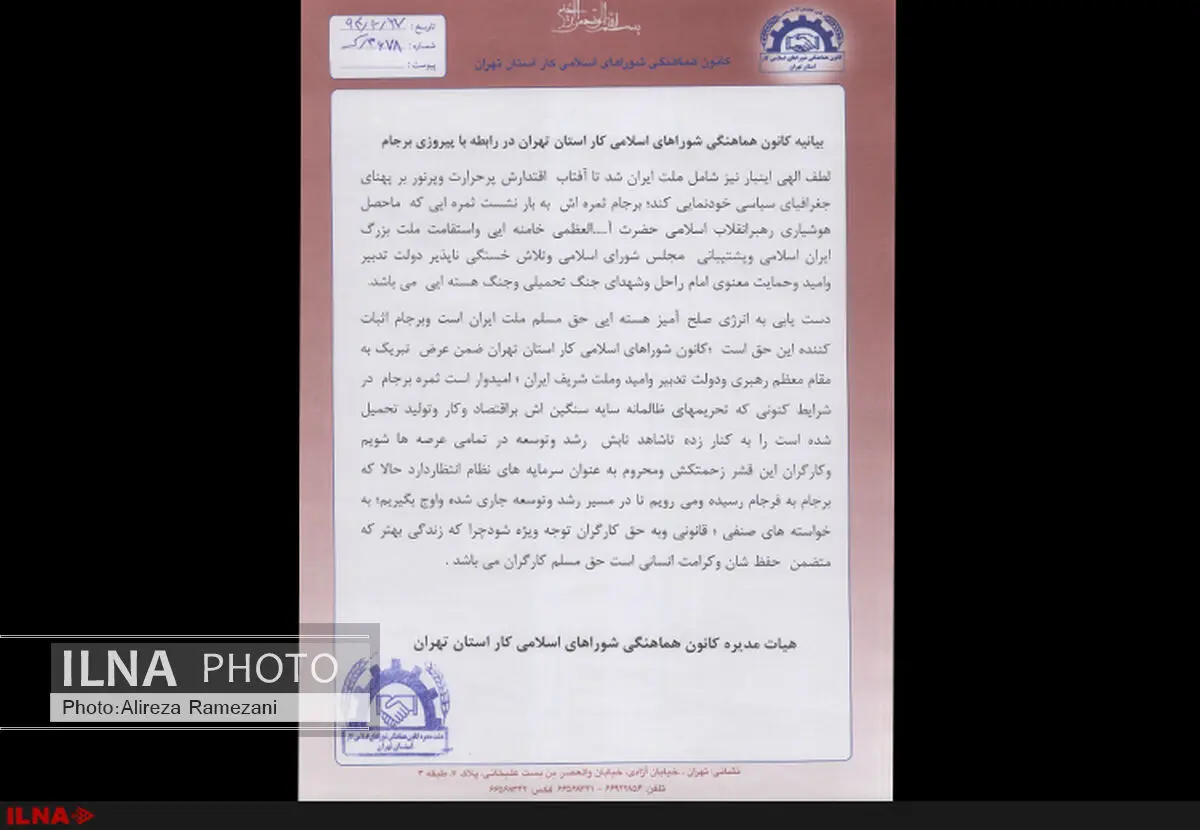 تاریخ:
شماره:
پیوست:
کانون هماهنگی شوراهای اسلامی کار استان تهران
کانون هماهنگی شوراهای اسلامی کار
استان تهران
بیانیه کانون هماهنگی شوراهای اسلامی کار استان تهران در رابطه با پیروزی برجام
لطف الهی اینبار نیز شامل ملت ایران شد تا آفتاب اقتدارش پرحرارت وپرنور بر پهنای
جغرافیای سیاسی خودنمایی کند؛ برجام ثمره اش به بار نشست ثمره ایی که ماحصل
هوشیاری رهبرانقلاب اسلامی حضرت آ...العظمی خامنه ایی واستقامت ملت بزرگ
ایران اسلامی وپشتیبانی مجلس شورای اسلامی وتلاش خستگی ناپذیر دولت تدبیر
وامید وحمایت معنوی امام راحل وشهدای جنگ تحمیلی وجنگ هسته ایی می باشد.
دست یابی به انرژی صلح آمیز هسته ایی حق مسلم ملت ایران است وبرجام اثبات
کننده این حق است ؛کانون شوراهای اسلامی کار استان تهران ضمن عرض تبریک به
مقام معظم رهبری ودولت تدبیر وامید وملت شریف ایران ؛ امیدوار است ثمره برجام در
شرایط کنونی که تحریمهای ظالمانه سایه سنگین اش براقتصاد وکار وتولید تحمیل
شده است را به کنار زده تاشاهد تابش رشد وتوسعه در تمامی عرصه ها شویم
وکارگران این قشر زحمتکش ومحروم به عنوان سرمایه های نظام انتظاردارد حالا که
برجام به فرجام رسیده ومی رویم تا در مسیر رشد وتوسعه جاری شده واوج بگیریم؛ به
خواسته های صنفی ؛ قانونی وبه حق کارگران توجه ویژه شودچرا که زندگی بهتر که
متضمن حفظ شان وکرامت انسانی است حق مسلم کارگران می باشد .
هیات مدیره کانون هماهنگی شوراهای اسلامی کار استان تهران
ILNA PHOTO
Photo:Alireza Ramezani
استان تهران
نشانی: تهران ، خیابان آزادی، خیابان والعصر بن بست علیخانی، پلاک ۷، طبقه ۳
تلفن: ۶۶۹۲۹۸۵۴ - ۶۶۵۶۸۳۲۱ فکس: ۶۶۵۶۸۳۲۲
ILNA